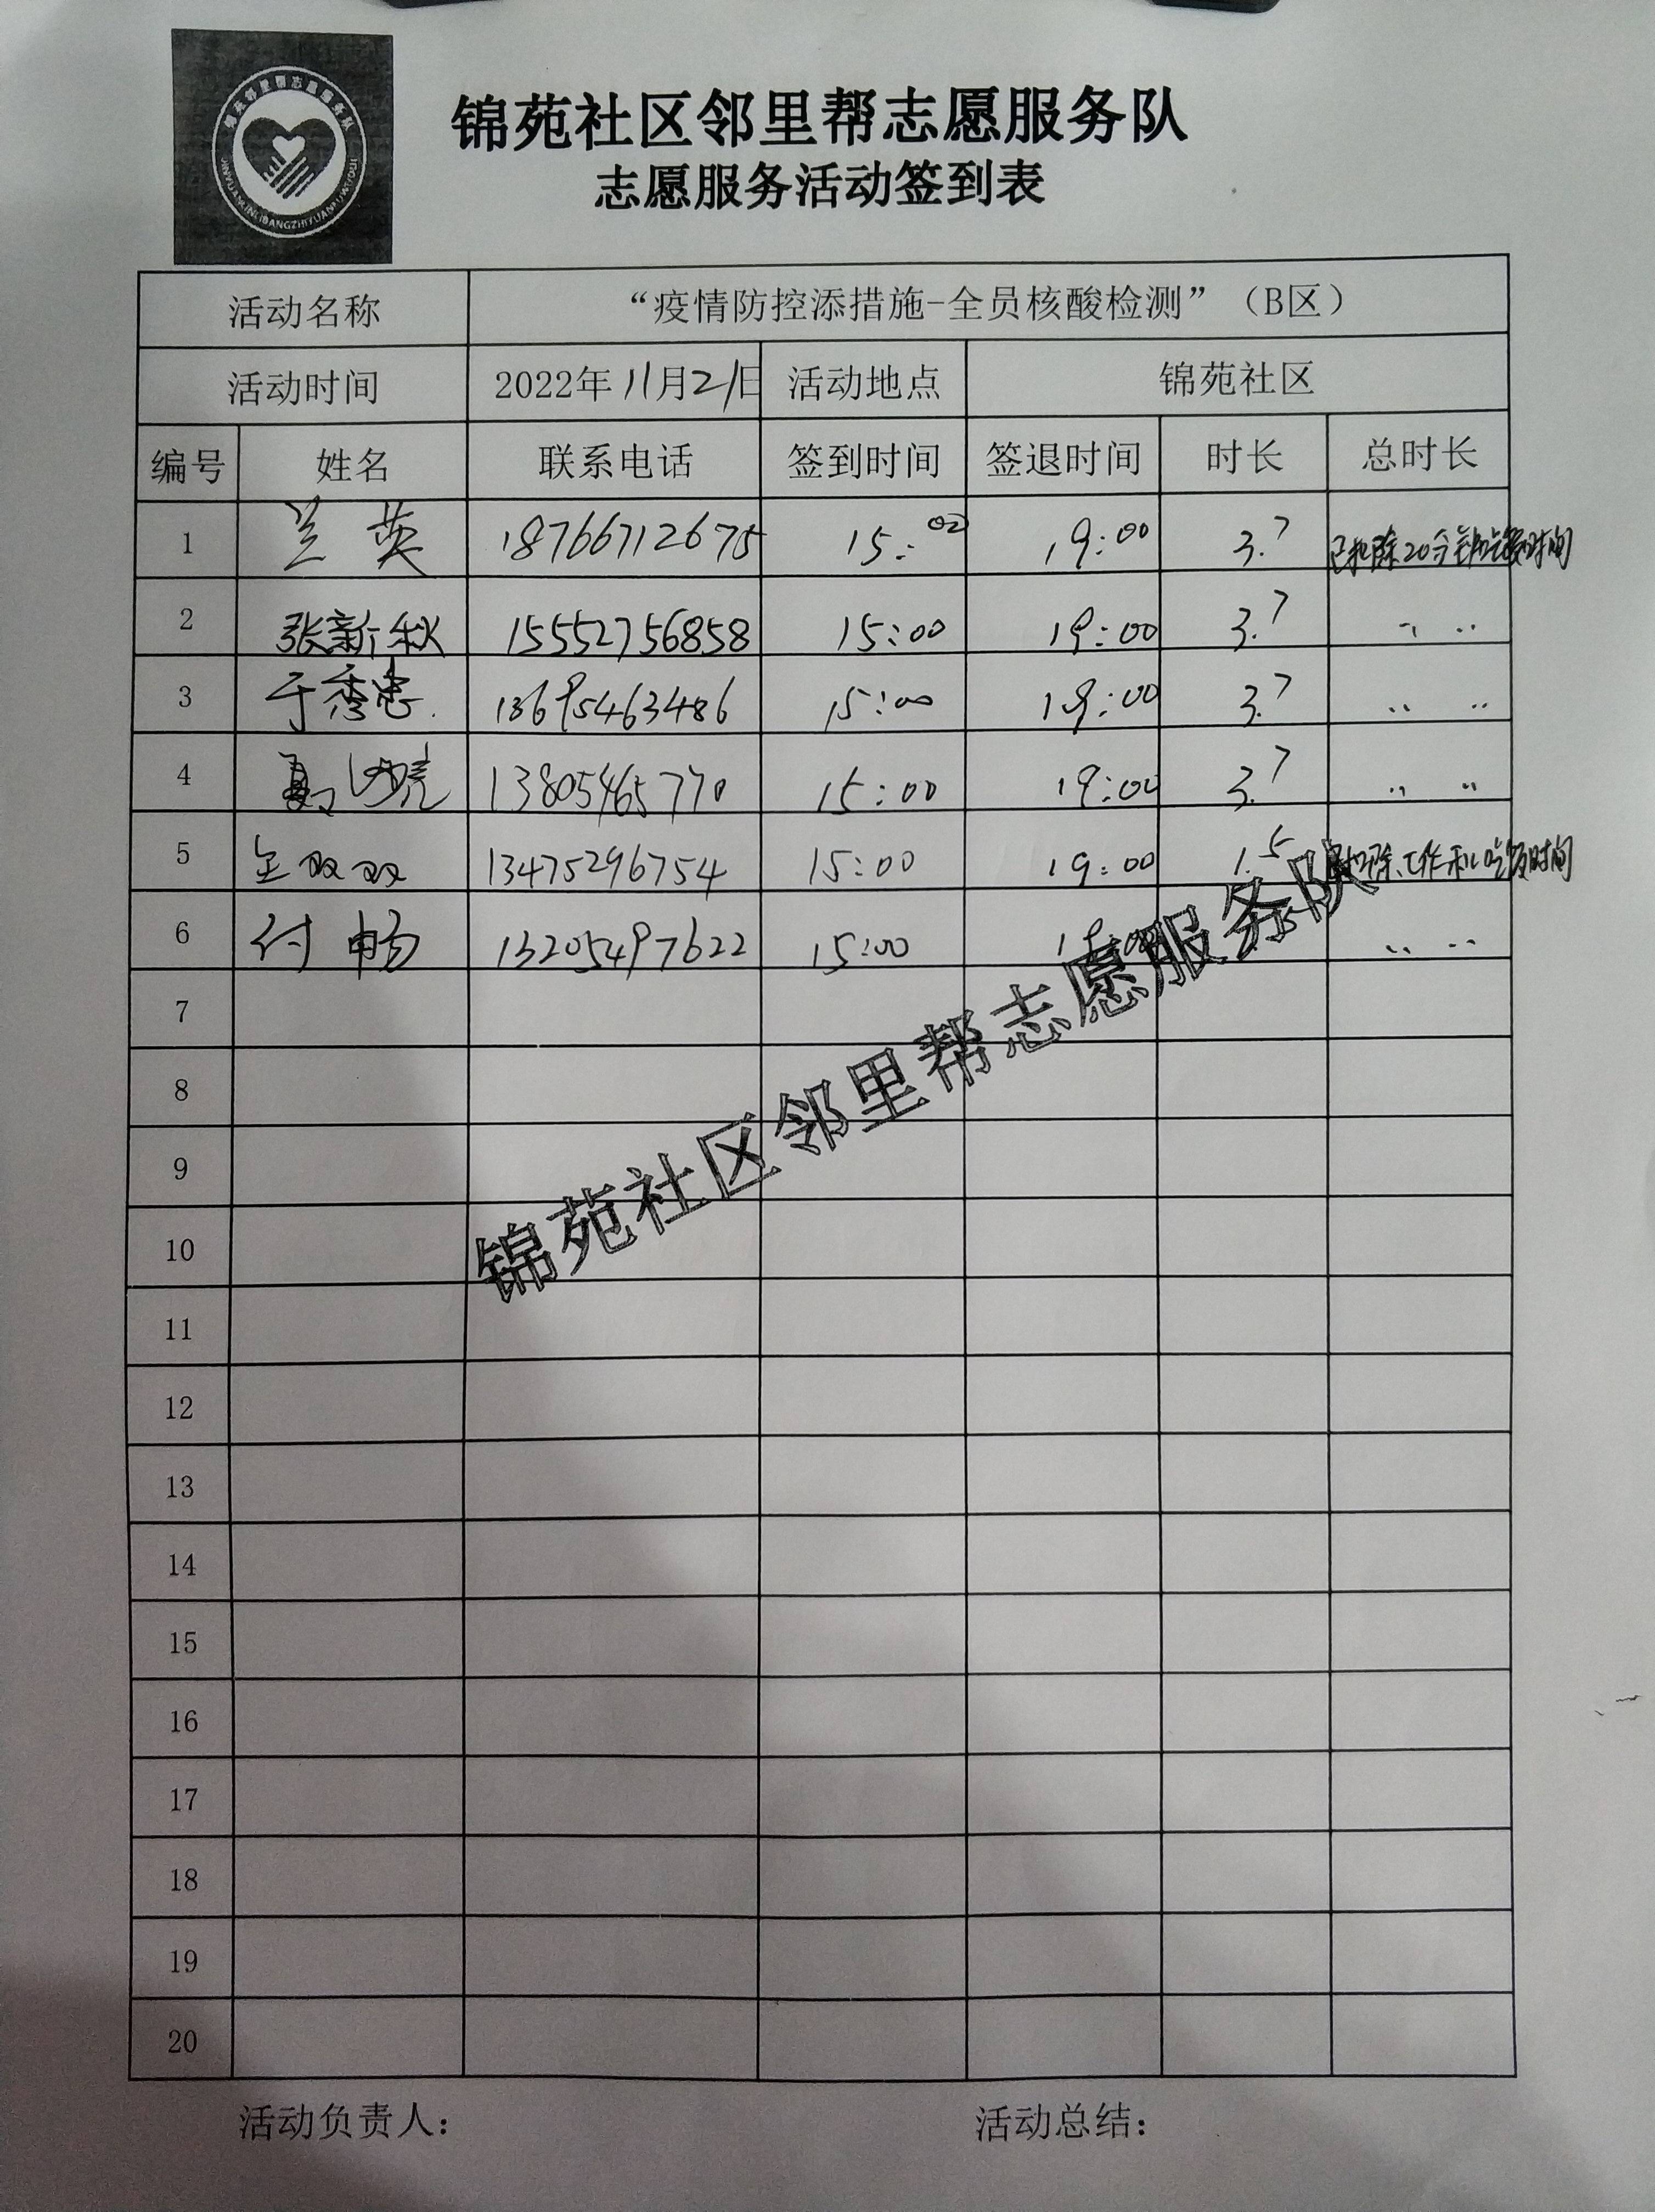 锦苑社区邻里帮志愿服务队
志愿服务活动签到表
活动名称 “疫情防控添措施-全员核酸检测”（B区）
活动时间 2022年11月21日 活动地点 锦苑社区
编号 姓名 联系电话 签到时间 签退时间 时长 总时长
1 兰英 18766712675 15:02 19:00 3.7 已扣除20分钟吃饭时间
2 张新秋 15552756858 15:00 19:00 3.7 〃 〃
3 于秀忠 13695463486 15:00 19:00 3.7 〃 〃
4 13805465770 15:00 19:00 3.7 〃 〃
5 双双 13475296754 15:00 19:00 1.5 扣除工作和吃饭时间
6 付畅 13205497622 15:00 〃 〃
7
8
9
10
11
12
13
14
15
16
17
18
19
20
锦苑社区邻里帮志愿服务队
活动负责人： 活动总结：